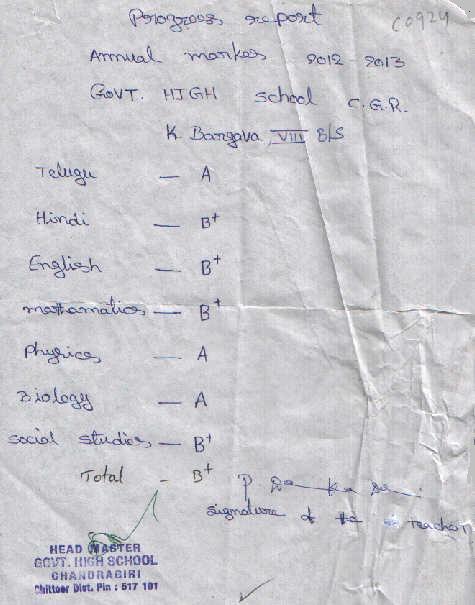 Progress report
C0924
Annual markes 2012-2013
GOVT. HIGH school C.G.R.
K Bargava, VIII B/S
Telugu — A
Hindi — B+
English — B+
mathamatics — B+
Physics — A
Biology — A
social studies — B+
Total - B+
signature of the teacher
HEAD MASTER
GOVT. HIGH SCHOOL
CHANDRAGIRI
Chittoor Dist. Pin : 517 101